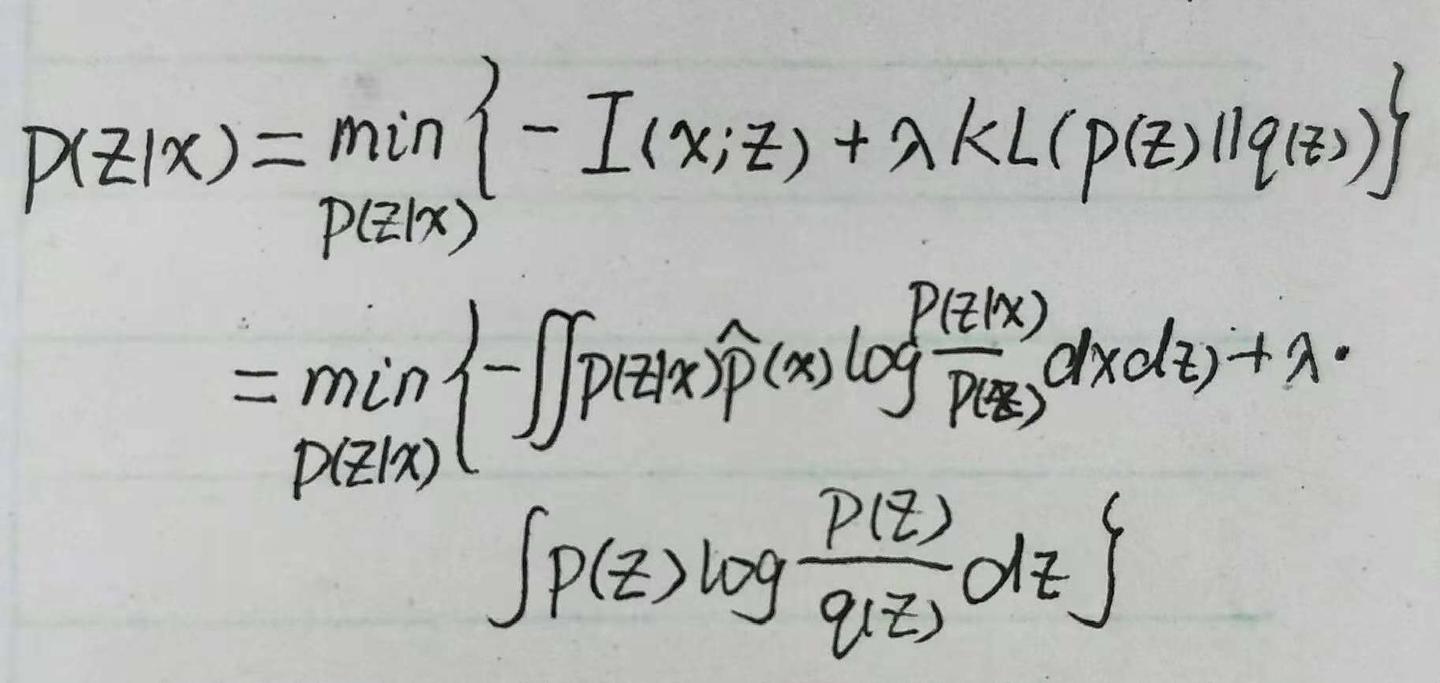 p(z|x) = min_{p(z|x)} { - I(x;z) + λ KL(p(z)||q(z)) }
= min_{p(z|x)} { - ∬ p(z|x) p̂(x) log \frac{p(z|x)}{p(z)} dxdz) + λ ·
∫ p(z) log \frac{p(z)}{q(z)} dz }